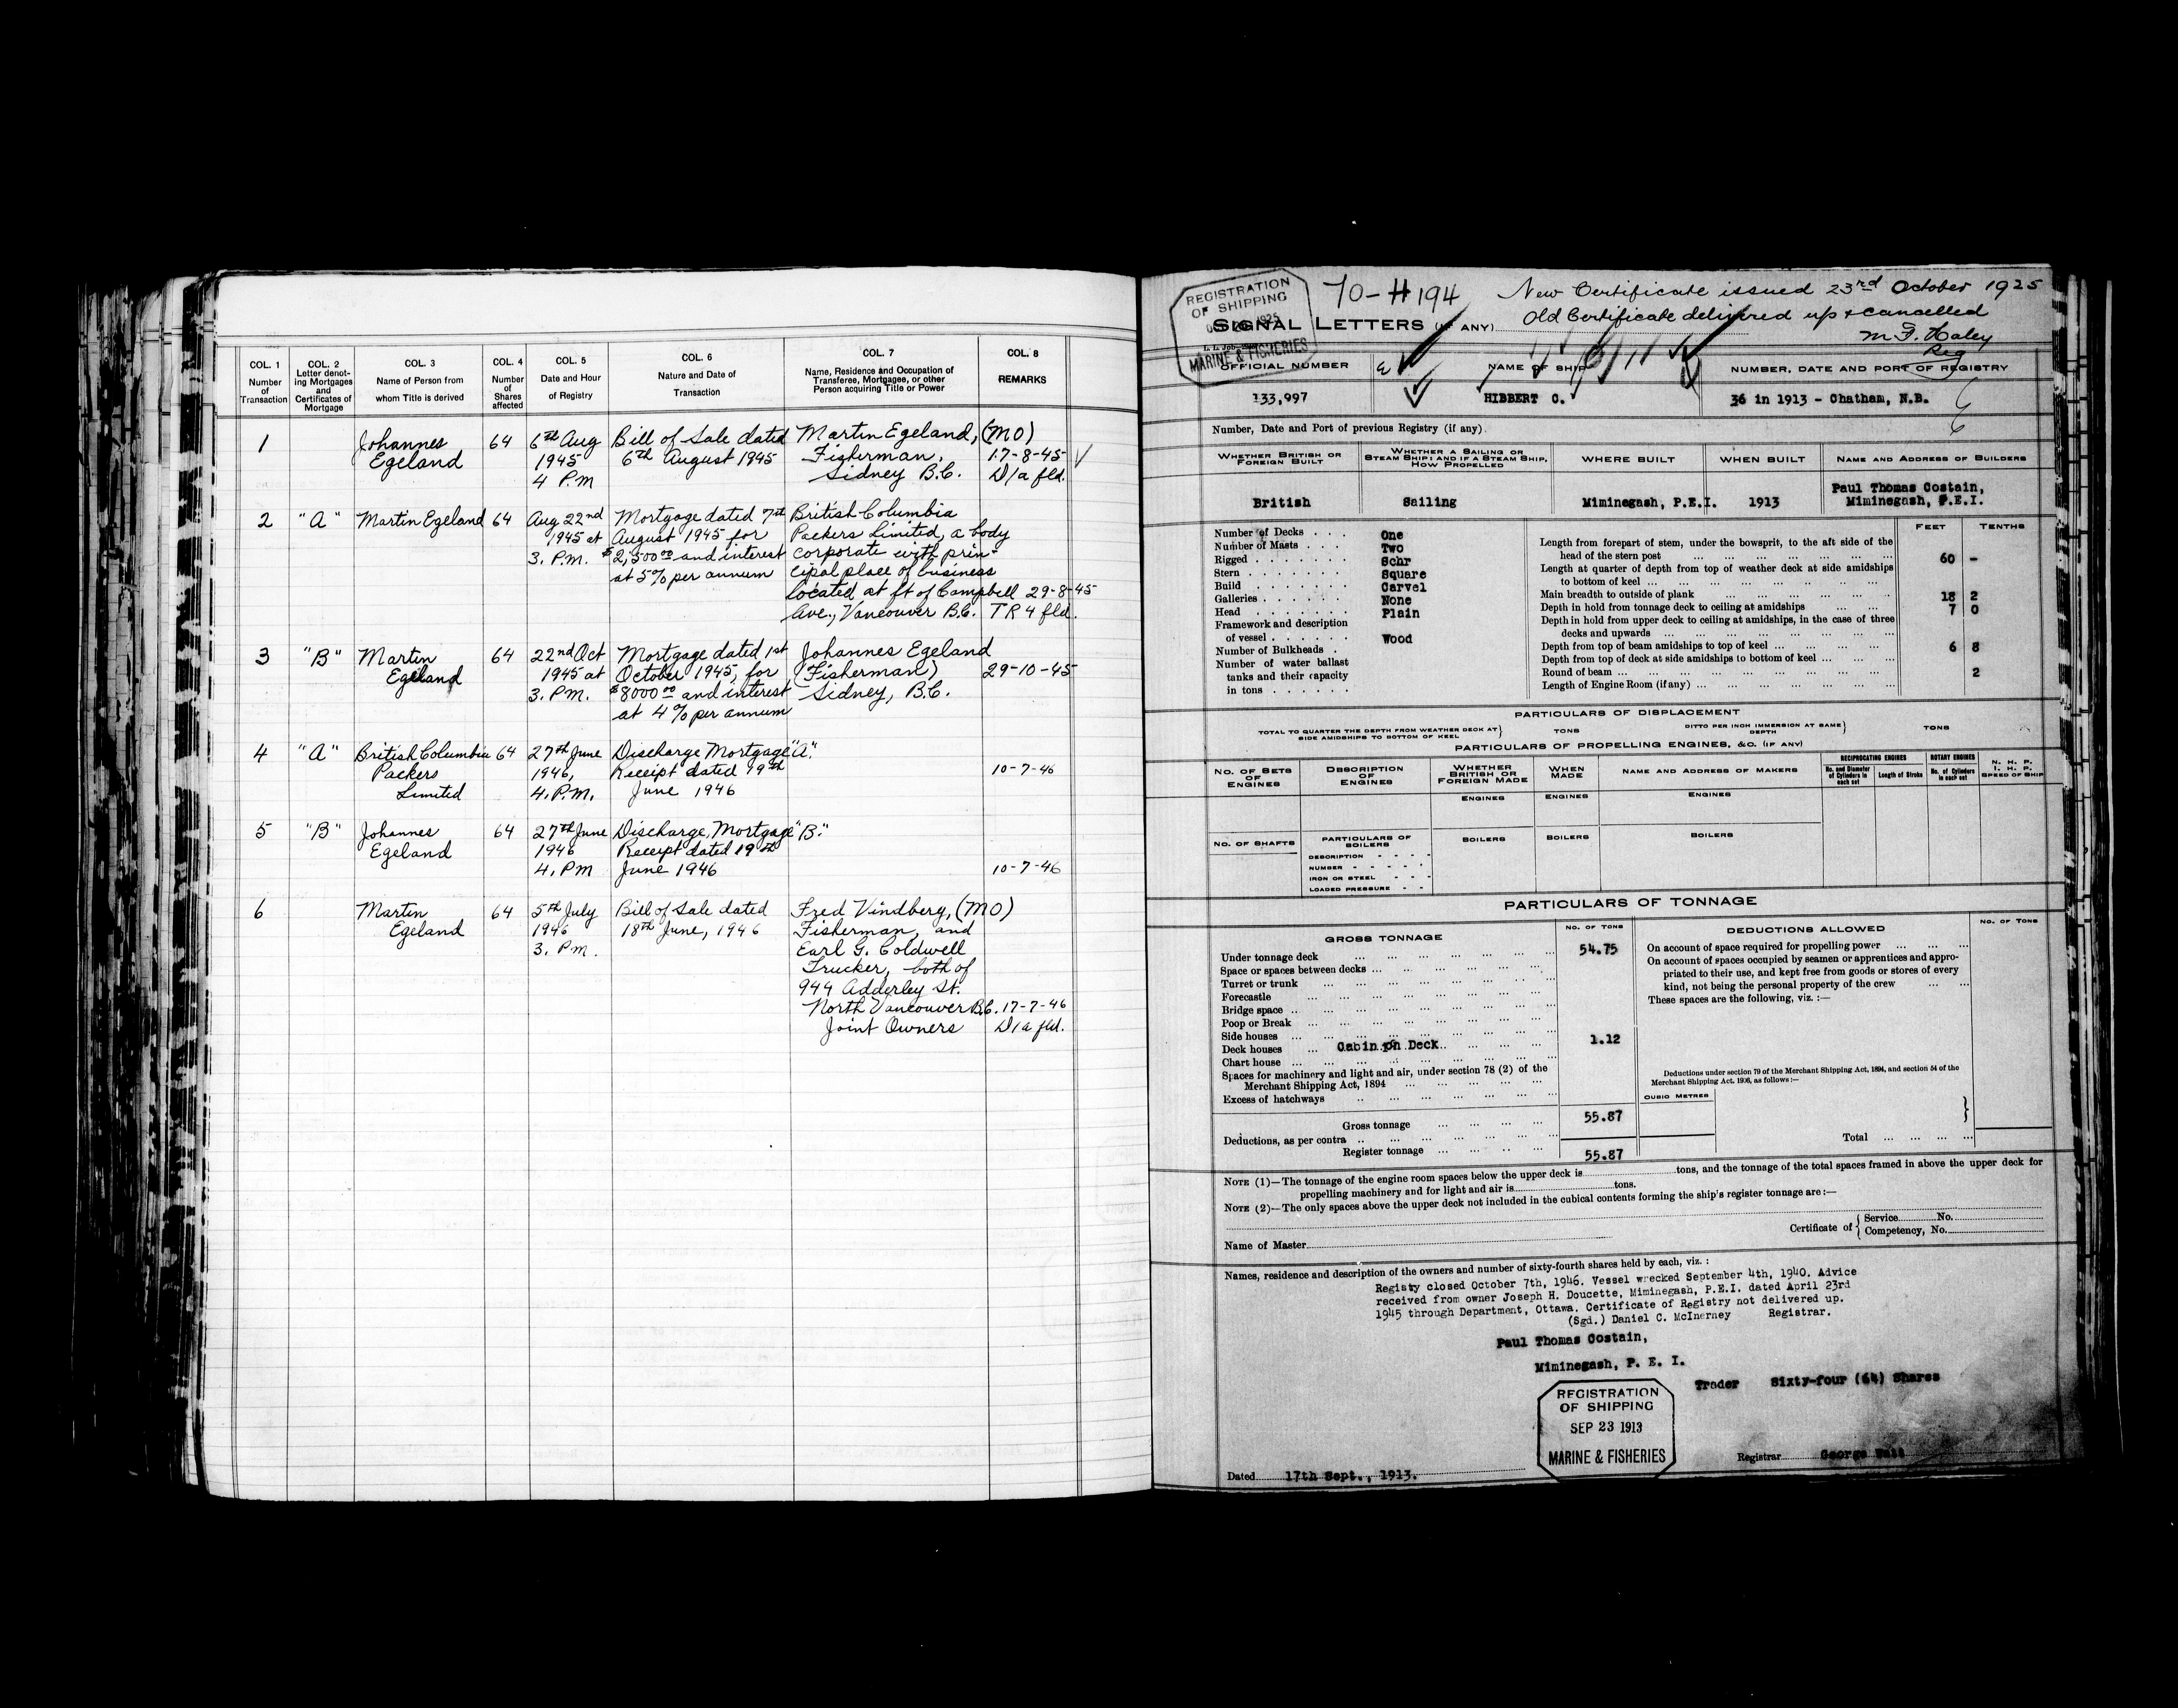 COL. 1 Number of Transaction
COL. 2 Letter denoting Mortgages and Certificates of Mortgage
COL. 3 Name of Person from whom Title is derived
COL. 4 Number of Shares affected
COL. 5 Date and Hour of Registry
COL. 6 Nature and Date of Transaction
COL. 7 Name, Residence and Occupation of Transferee, Mortgagee, or other Person acquiring Title or Power
COL. 8 REMARKS
1 Johannes 64 6th Aug Bill of Sale dated Martin Egeland, (MO)
Egeland 1945 6th August 1945 Fisherman, 17-8-45
4 P.M Sidney B.C. D/a fld.
2 "A" Martin Egeland 64 Aug 22nd Mortgage dated 7th British Columbia
1945 at August 1945 for Packers Limited, a body
3. P.M. $2,500 00 and interest corporate with prin-
at 5% per annum cipal place of business
located at ft of Campbell 29-8-45
Ave., Vancouver B.C. TR 4 fld.
3 "B" Martin 64 22nd Oct Mortgage dated 1st Johannes Egeland
Egeland 1945 at October 1945, for (Fisherman) 29-10-45
3. P.M. $8000 00 and interest Sidney, B.C.
at 4% per annum
4 "A" British Columbia 64 27th June Discharge Mortgage "A".
Packers 1946, Receipt dated 19th 10-7-46
Limited 4. P.M. June 1946
5 "B" Johannes 64 27th June Discharge, Mortgage "B".
Egeland 1946 Receipt dated 19th
4. P.M June 1946 10-7-46
6 Martin 64 5th July Bill of Sale dated Fred Vindberg, (MO)
Egeland 1946 18th June, 1946 Fisherman, and
3. P.M. Earl G. Coldwell
Trucker, both of
944 Adderley St.
North Vancouver B.C. 17-7-46
Joint Owners D/a fld.
REGISTRATION
OF SHIPPING
1925
MARINE & FISHERIES
70-H194
New Certificate issued 23rd October 1925
Old Certificate delivered up & cancelled
M. F. Haley
Reg
SIGNAL LETTERS (IF ANY)
OFFICIAL NUMBER NAME OF SHIP NUMBER, DATE AND PORT OF REGISTRY
133,997 HIBBERT C. 36 in 1913 - Chatham, N.B.
Number, Date and Port of previous Registry (if any)
WHETHER BRITISH OR FOREIGN BUILT
WHETHER A SAILING OR STEAM SHIP; AND IF A STEAM SHIP, HOW PROPELLED
WHERE BUILT
WHEN BUILT
NAME AND ADDRESS OF BUILDERS
British Sailing Miminegash, P.E.I. 1913 Paul Thomas Costain,
Miminegash, P.E.I.
Number of Decks . . . One
Number of Masts . . . Two
Rigged . . . Schr
Stern . . . Square
Build . . . Carvel
Galleries . . . None
Head . . . Plain
Framework and description
of vessel . . . Wood
Number of Bulkheads .
Number of water ballast
tanks and their capacity
in tons . . .
FEET TENTHS
Length from forepart of stem, under the bowsprit, to the aft side of the
head of the stern post 60 -
Length at quarter of depth from top of weather deck at side amidships
to bottom of keel
Main breadth to outside of plank 18 2
Depth in hold from tonnage deck to ceiling at amidships 7 0
Depth in hold from upper deck to ceiling at amidships, in the case of three
decks and upwards
Depth from top of beam amidships to top of keel 6 8
Depth from top of deck at side amidships to bottom of keel
Round of beam 2
Length of Engine Room (if any)
PARTICULARS OF DISPLACEMENT
TOTAL TO QUARTER THE DEPTH FROM WEATHER DECK AT SIDE AMIDSHIPS TO BOTTOM OF KEEL } TONS DITTO PER INCH IMMERSION AT SAME DEPTH } TONS
PARTICULARS OF PROPELLING ENGINES, &C. (IF ANY)
NO. OF SETS OF ENGINES
DESCRIPTION OF ENGINES
WHETHER BRITISH OR FOREIGN MADE
WHEN MADE
NAME AND ADDRESS OF MAKERS
RECIPROCATING ENGINES
No. and Diameter of Cylinders in each set
Length of Stroke
ROTARY ENGINES
No. of Cylinders in each set
N. H. P.
I. H. P.
SPEED OF SHIP
ENGINES ENGINES ENGINES
NO. OF SHAFTS PARTICULARS OF BOILERS BOILERS BOILERS BOILERS
DESCRIPTION
NUMBER
IRON OR STEEL
LOADED PRESSURE
PARTICULARS OF TONNAGE
GROSS TONNAGE NO. OF TONS
Under tonnage deck 54.75
Space or spaces between decks
Turret or trunk
Forecastle
Bridge space
Poop or Break
Side houses
Deck houses Cabin on Deck 1.12
Chart house
Spaces for machinery and light and air, under section 78 (2) of the
Merchant Shipping Act, 1894
Excess of hatchways
Gross tonnage 55.87
Deductions, as per contra
Register tonnage 55.87
DEDUCTIONS ALLOWED NO. OF TONS
On account of space required for propelling power
On account of spaces occupied by seamen or apprentices and appro-
priated to their use, and kept free from goods or stores of every
kind, not being the personal property of the crew
These spaces are the following, viz. :—
Deductions under section 79 of the Merchant Shipping Act, 1894, and section 54 of the
Merchant Shipping Act. 1906, as follows :—
CUBIC METRES
Total
NOTE (1)—The tonnage of the engine room spaces below the upper deck is tons, and the tonnage of the total spaces framed in above the upper deck for
propelling machinery and for light and air is tons.
NOTE (2)—The only spaces above the upper deck not included in the cubical contents forming the ship's register tonnage are :—
Name of Master
Certificate of { Service No.
Competency, No.
Names, residence and description of the owners and number of sixty-fourth shares held by each, viz. :
Registry closed October 7th, 1946. Vessel wrecked September 4th, 1940. Advice
received from owner Joseph H. Doucette, Miminegash, P.E.I. dated April 23rd
1945 through Department, Ottawa. Certificate of Registry not delivered up.
(Sgd.) Daniel C. McInerney Registrar.
Paul Thomas Costain,
Miminegash, P. E. I.
Trader Sixty-four (64) Shares
REGISTRATION
OF SHIPPING
SEP 23 1913
MARINE & FISHERIES
Dated 17th Sept., 1913.
Registrar George Watt